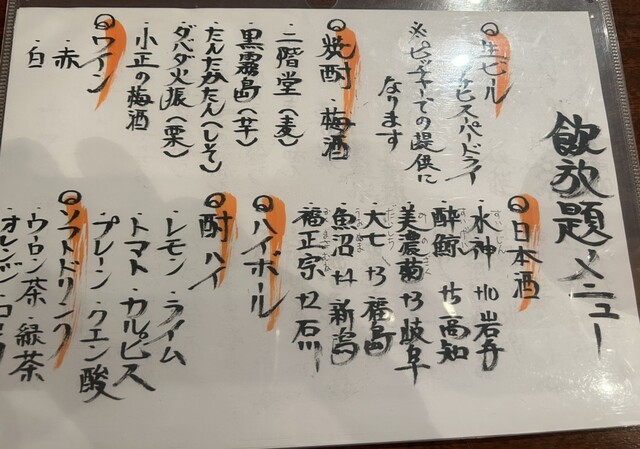 飲放題メニュー
◎生ビール
アサヒスーパードライ
※ピッチャーでの提供に
なります
◎焼酎・梅酒
二階堂(麦)
黒霧島(芋)
たんたかたん(しそ)
ダバダ火振(栗)
小正の梅酒
◎ワイン
・赤
・白
◎日本酒
・水神 +10 岩手
すいじん
・酔鯨 +5 高知
・美濃菊 +3 岐阜
・大七 +3 福島
・魚沼 +4 新潟
・福正宗 +2 石川
◎ハイボール
◎酎ハイ
・レモン・ライム
・トマト・カルピス
・プレーン・クエン酸
◎ソフトドリンク
・ウーロン茶・緑茶
・オレンジ・コーラ